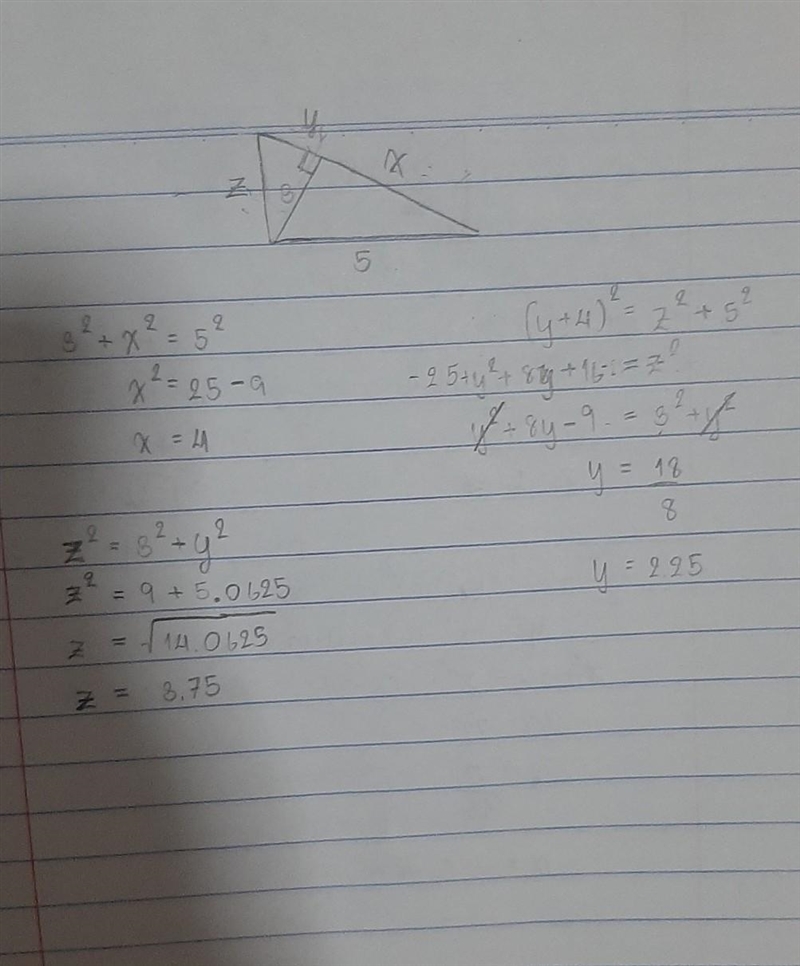 y
x
z
3
5
3² + x² = 5²
x² = 25 - 9
x = 4
z² = 3² + y²
z² = 9 + 5.0625
z = √14.0625
z = 3.75
(y+4)² = z² + 5²
-25+y² + 8y + 16 = z²
y² + 8y - 9 = 3² + y²
y = 18/8
y = 2.25